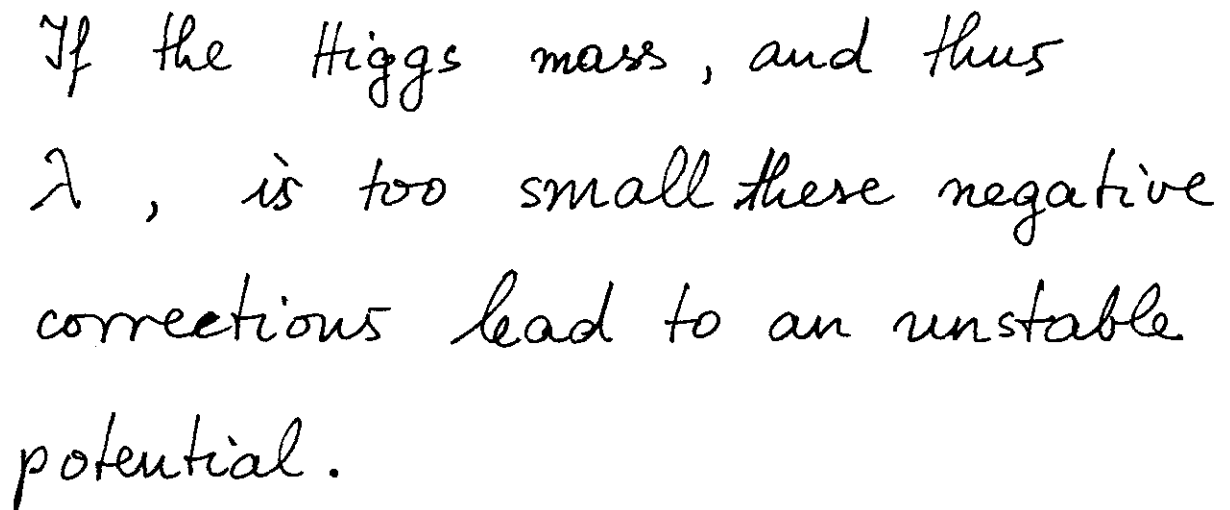 If the Higgs mass, and thus
λ, is too small these negative
corrections lead to an unstable
potential.